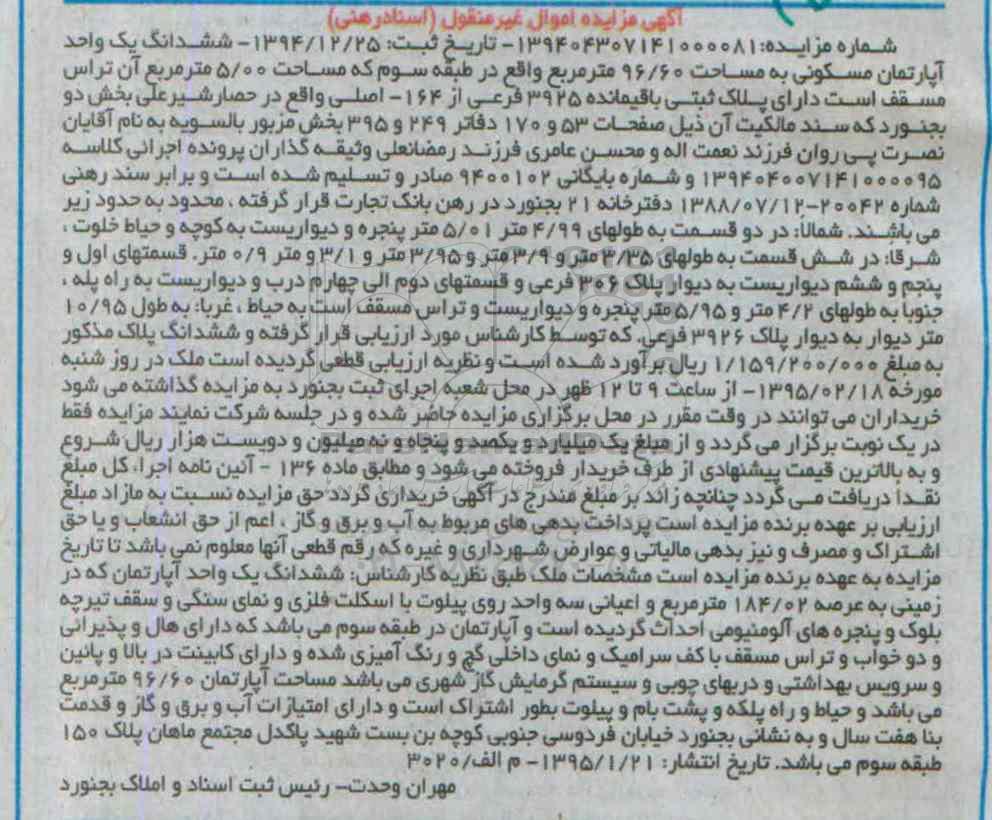 آگهی مزایده اموال غیرمنقول (اسنادرهنی)
شماره مزایده: ۱۳۹۴۰۴۳۰۷۱۴۱۰۰۰۰۸۱- تاریخ ثبت: ۱۳۹۴/۱۲/۲۵- ششدانگ یک واحد
آپارتمان مسکونی به مساحت ۹۶/۶۰ مترمربع واقع در طبقه سوم که مساحت ۵/۰۰ مترمربع آن تراس
مسقف است دارای پلاک ثبتی باقیمانده ۳۹۲۵ فرعی از ۱۶۴- اصلی واقع در حصارشیرعلی بخش دو
بجنورد که سند مالکیت آن ذیل صفحات ۵۳ و ۱۷۰ دفاتر ۲۴۹ و ۳۹۵ بخش مزبور بالسویه به نام آقایان
نصرت پی روان فرزند نعمت اله و محسن عامری فرزند رمضانعلی وثیقه گذاران پرونده اجرائی کلاسه
۱۳۹۴۰۴۰۰۷۱۴۱۰۰۰۰۹۵ و شماره بایگانی ۹۴۰۰۱۰۲ صادر و تسلیم شده است و برابر سند رهنی
شماره ۲۰۰۴۲-۱۳۸۸/۰۷/۱۲ دفترخانه ۲۱ بجنورد در رهن بانک تجارت قرار گرفته ، محدود به حدود زیر
می باشند. شمالا: در دو قسمت به طولهای ۴/۹۹ متر ۵/۰۱ متر پنجره و دیواریست به کوچه و حیاط خلوت ،
شرقا: در شش قسمت به طولهای ۳/۳۵ متر و ۳/۹ متر و ۳/۹۵ متر و ۳/۱ و متر ۰/۹ متر. قسمتهای اول و
پنجم و ششم دیواریست به دیوار پلاک ۳۰۶ فرعی و قسمتهای دوم الی چهارم درب و دیواریست به راه پله ،
جنوبا به طولهای ۴/۲ متر و ۵/۹۵ متر پنجره و دیواریست و تراس مسقف است به حیاط ، غربا: به طول ۱۰/۹۵
متر دیوار به دیوار پلاک ۳۹۲۶ فرعی. که توسط کارشناس مورد ارزیابی قرار گرفته و ششدانگ پلاک مذکور
به مبلغ ۱/۱۵۹/۲۰۰/۰۰۰ ریال برآورد شده است و نظریه ارزیابی قطعی گردیده است ملک در روز شنبه
مورخه ۱۳۹۵/۰۲/۱۸- از ساعت ۹ تا ۱۲ ظهر در محل شعبه اجرای ثبت بجنورد به مزایده گذاشته می شود
خریداران می توانند در وقت مقرر در محل برگزاری مزایده حاضر شده و در جلسه شرکت نمایند مزایده فقط
در یک نوبت برگزار می گردد و از مبلغ یک میلیارد و یکصد و پنجاه و نه میلیون و دویست هزار ریال شروع
و به بالاترین قیمت پیشنهادی از طرف خریدار فروخته می شود و مطابق ماده ۱۳۶ - آئین نامه اجرا، کل مبلغ
نقدا دریافت می گردد چنانچه زائد بر مبلغ مندرج در آگهی خریداری گردد حق مزایده نسبت به مازاد مبلغ
ارزیابی بر عهده برنده مزایده است پرداخت بدهی های مربوط به آب و برق و گاز ، اعم از حق انشعاب و یا حق
اشتراک و مصرف و نیز بدهی مالیاتی و عوارض شهرداری و غیره که رقم قطعی آنها معلوم نمی باشد تا تاریخ
مزایده به عهده برنده مزایده است مشخصات ملک طبق نظریه کارشناس: ششدانگ یک واحد آپارتمان که در
زمینی به عرصه ۱۸۴/۰۲ مترمربع و اعیانی سه واحد روی پیلوت با اسکلت فلزی و نمای سنگی و سقف تیرچه
بلوک و پنجره های آلومنیومی احداث گردیده است و آپارتمان در طبقه سوم می باشد که دارای هال و پذیرائی
و دو خواب و تراس مسقف با کف سرامیک و نمای داخلی گچ و رنگ آمیزی شده و دارای کابینت در بالا و پائین
و سرویس بهداشتی و دربهای چوبی و سیستم گرمایش گاز شهری می باشد مساحت آپارتمان ۹۶/۶۰ مترمربع
می باشد و حیاط و راه پلکه و پشت بام و پیلوت بطور اشتراک است و دارای امتیازات آب و برق و گاز و قدمت
بنا هفت سال و به نشانی بجنورد خیابان فردوسی جنوبی کوچه بن بست شهید پاکدل مجتمع ماهان پلاک ۱۵۰
طبقه سوم می باشد. تاریخ انتشار: ۱۳۹۵/۱/۲۱- م الف/۳۰۲۰
مهران وحدت- رئیس ثبت اسناد و املاک بجنورد